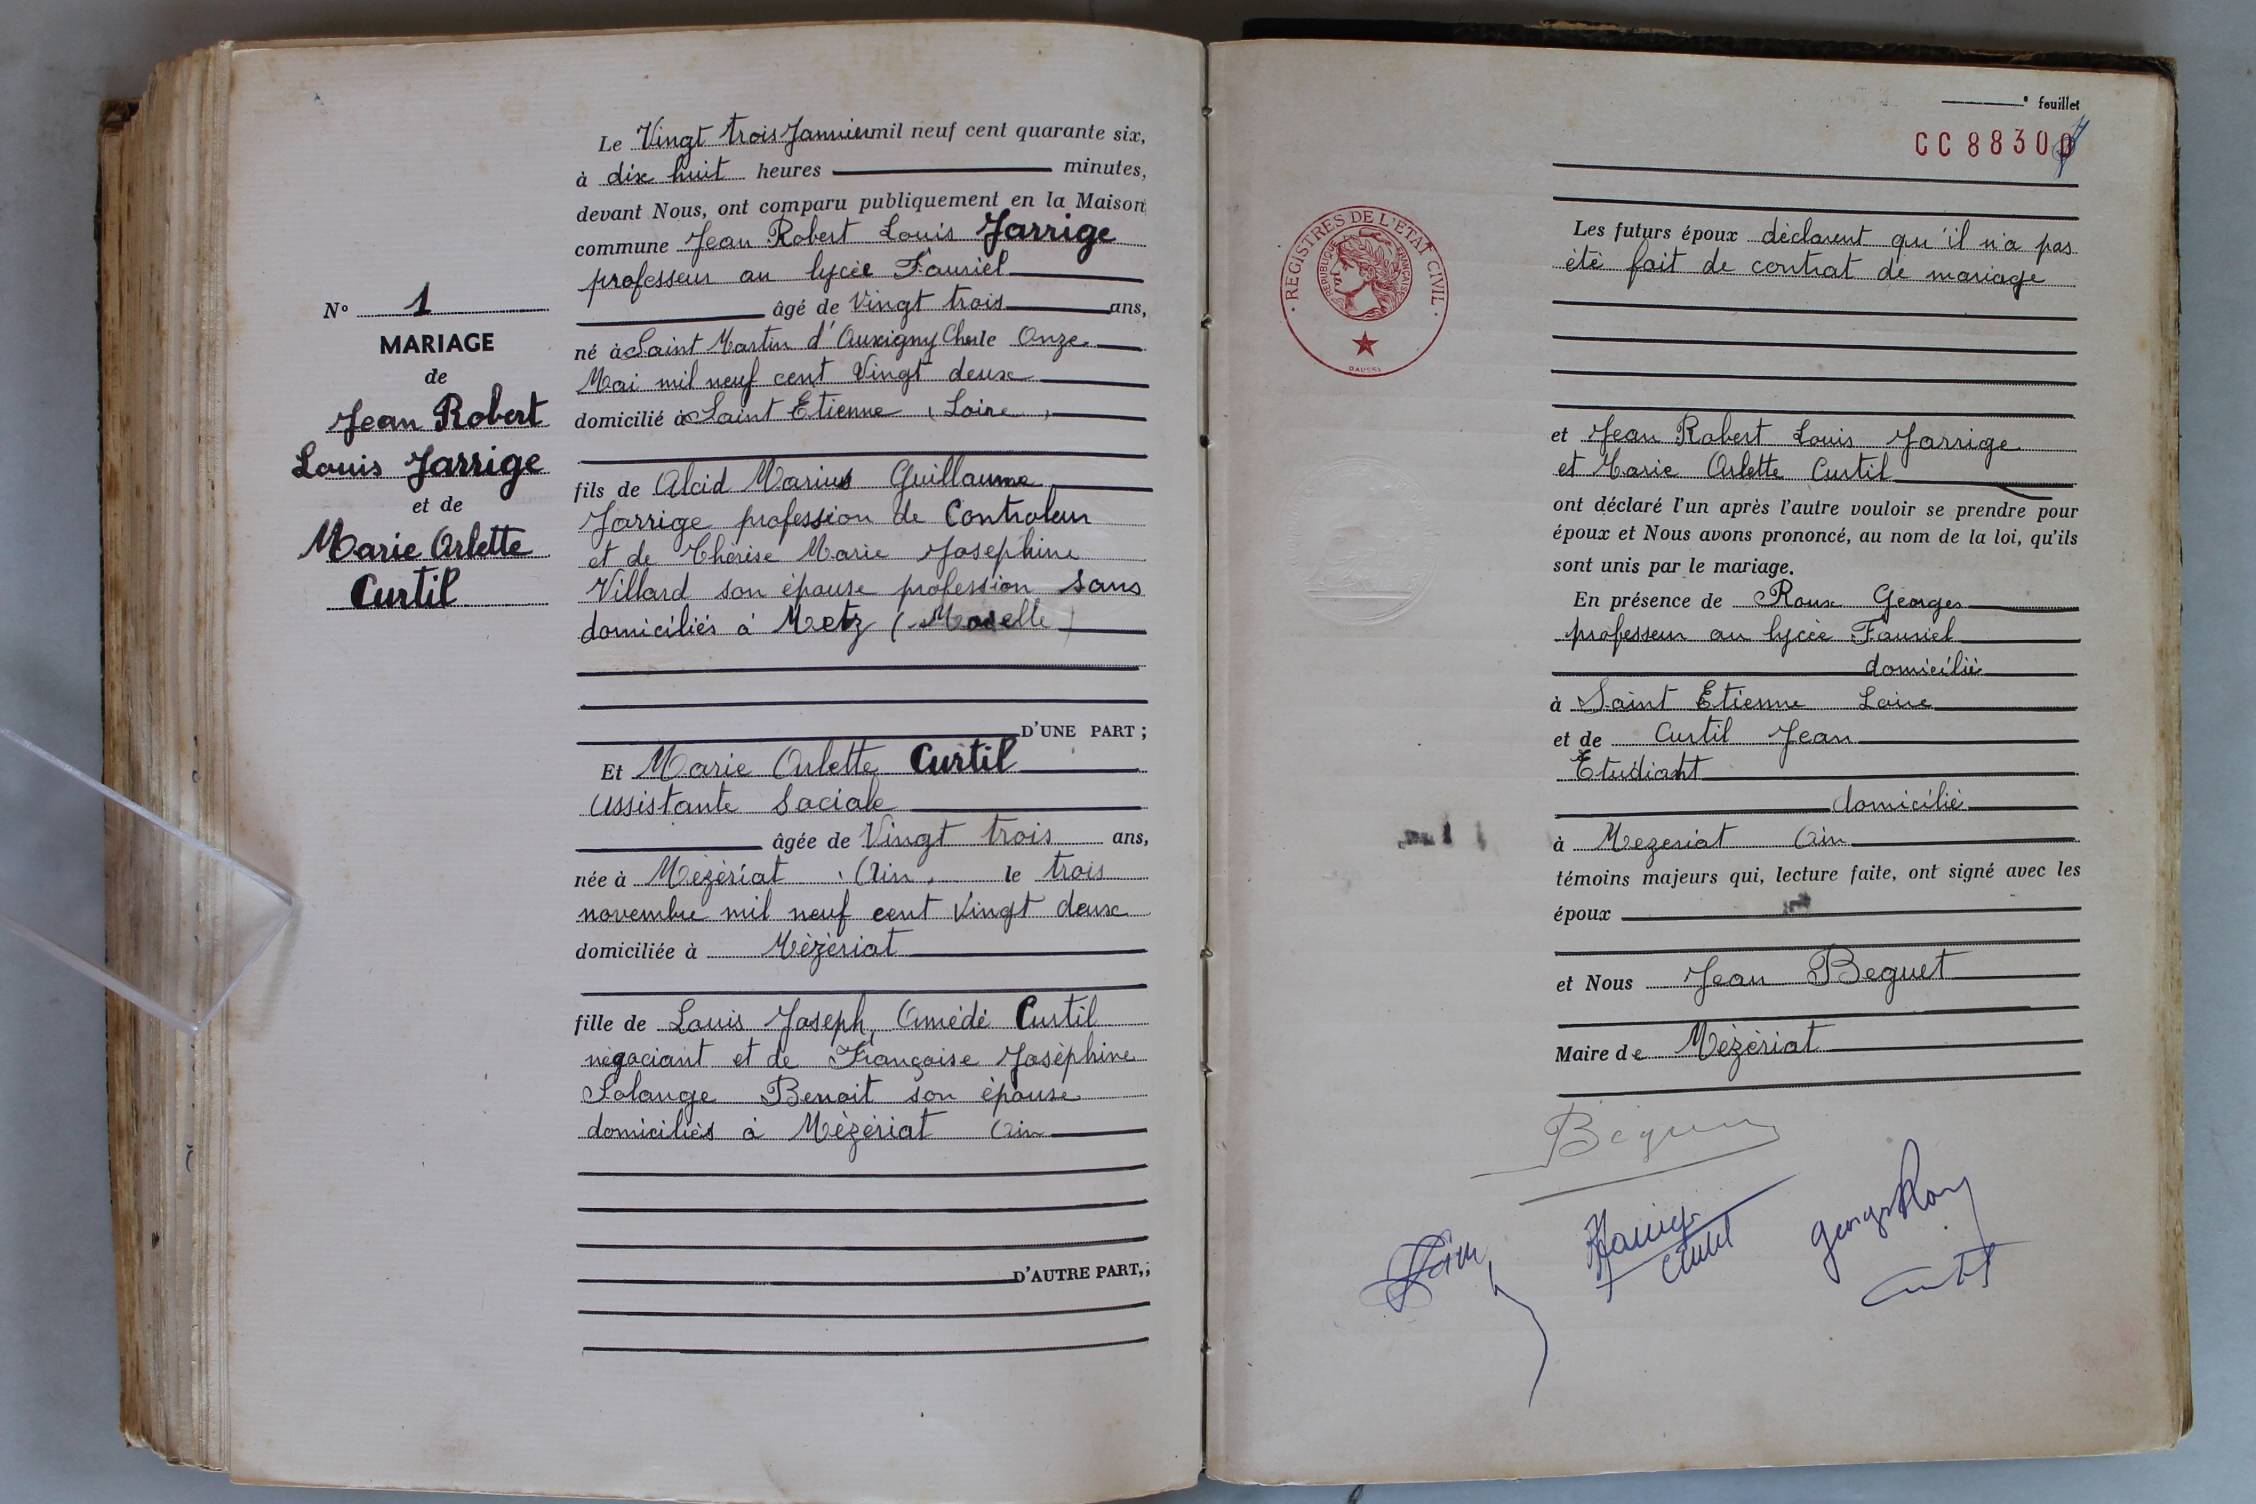 Le Vingt trois Janvier mil neuf cent quarante six,
à dix huit heures minutes,
devant Nous, ont comparu publiquement en la Maison
commune Jean Robert Louis Jarrige
professeur au lycée Fauriel
âgé de Vingt trois ans,
né à Saint Martin d'Auxigny Cher le Onze
Mai mil neuf cent Vingt deux
domicilié à Saint Etienne (Loire)
fils de Alcid Marius Guillaume
Jarrige profession de Controleur
et de Thérèse Marie Josephine
Villard son épouse profession sans
domiciliés à Metz (Moselle)
D'UNE PART ;
N° 1
MARIAGE
de
Jean Robert
Louis Jarrige
et de
Marie Arlette
Curtil
Et Marie Arlette Curtil
Assistante Sociale
âgée de Vingt trois ans,
née à Mézériat (Ain) le trois
novembre mil neuf cent Vingt deux
domiciliée à Mézériat
fille de Louis Joseph, Amédé Curtil
négociant et de Françoise Joséphine
Solange Benoit son épouse
domiciliés à Mézériat Ain
D'AUTRE PART,;
° feuillet
CC 8830
REGISTRES DE L'ETAT CIVIL
REPUBLIQUE FRANÇAISE
Les futurs époux déclarent qu'il n'a pas
été fait de contrat de mariage
et Jean Robert Louis Jarrige
et Marie Arlette Curtil
ont déclaré l'un après l'autre vouloir se prendre pour
époux et Nous avons prononcé, au nom de la loi, qu'ils
sont unis par le mariage.
En présence de Roux Georges
professeur au lycée Fauriel
domicilié
à Saint Etienne Loire
et de Curtil Jean
Etudiant
domicilié
à Mezeriat Ain
témoins majeurs qui, lecture faite, ont signé avec les
époux
et Nous Jean Beguet
Maire de Mézériat